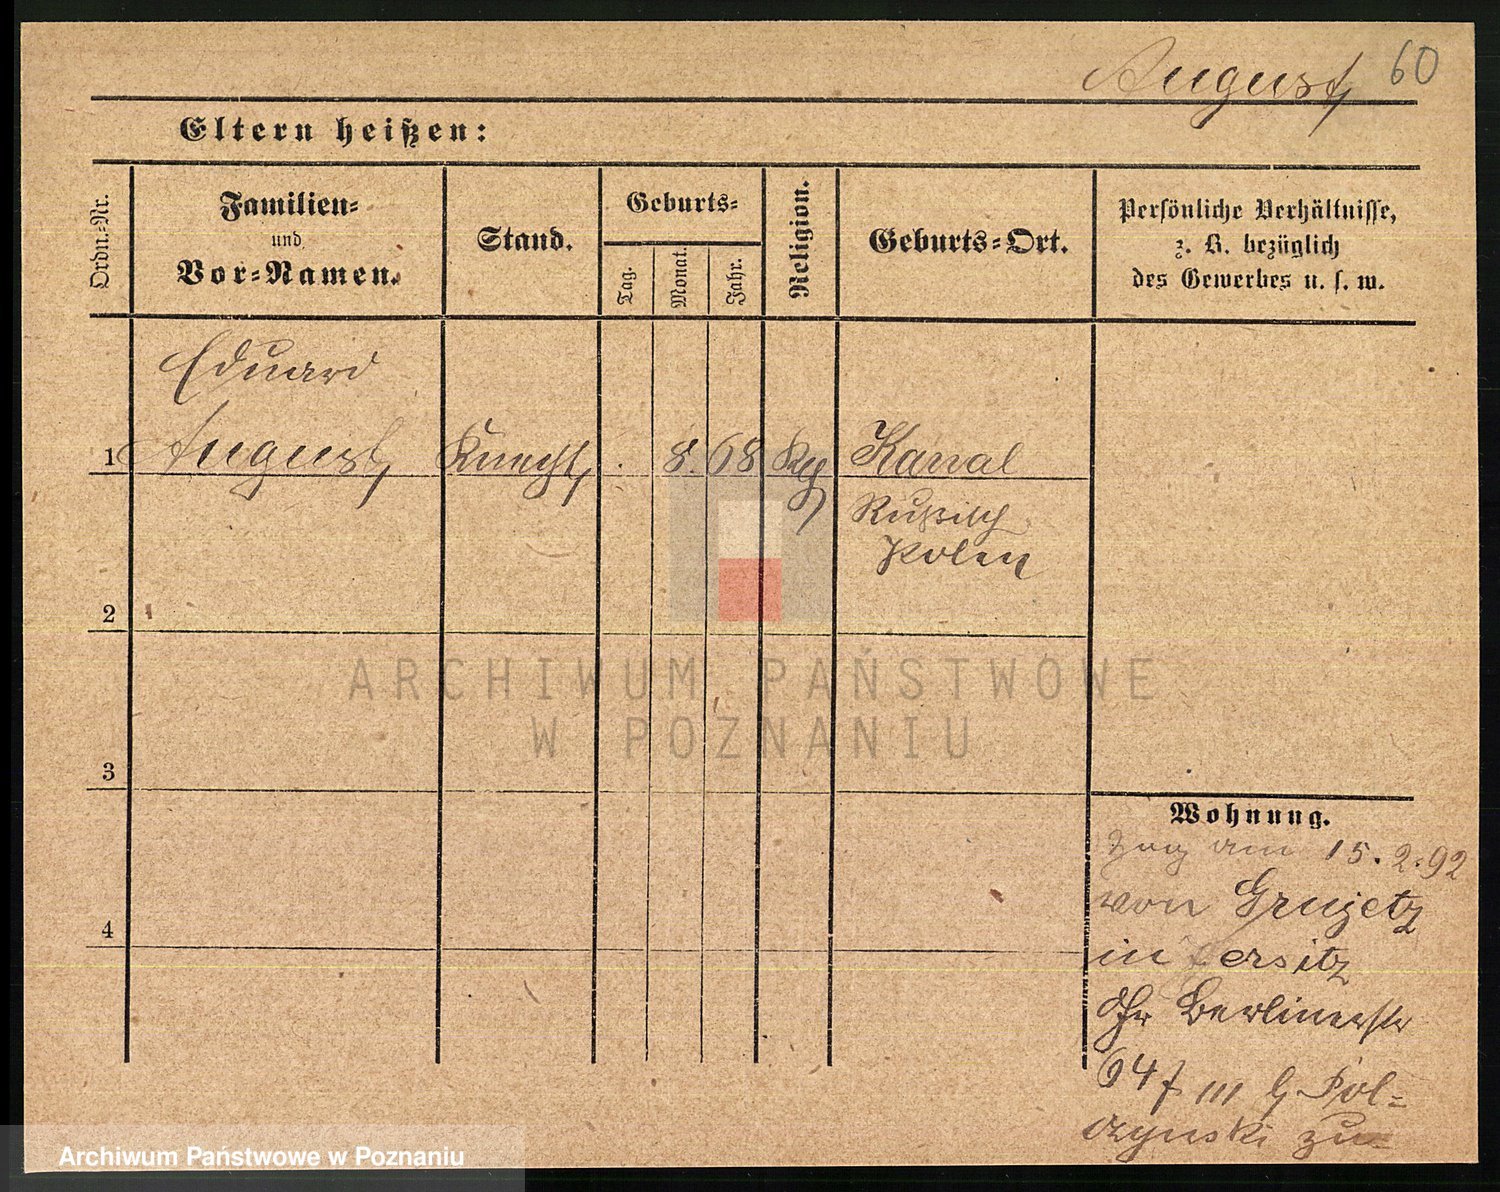 August 60
Eltern heißen:
Ordn.-Nr.
Familien-
und
Vor-Namen.
Stand.
Geburts-
Tag.
Monat.
Jahr.
Religion.
Geburts-Ort.
Persönliche Verhältnisse,
z. B. bezüglich
des Gewerbes u. s. w.
Eduard
1 August Knecht . 8. 68 Kanal
Rußisch
Polen
2
3
4
Wohnung.
Zug am 15.2.92
von Grujetz
in Jersitz
Berlinerstr
III Pol-
czynski zu
ARCHIWUM PAŃSTWOWE
W POZNANIU
Archiwum Państwowe w Poznaniu